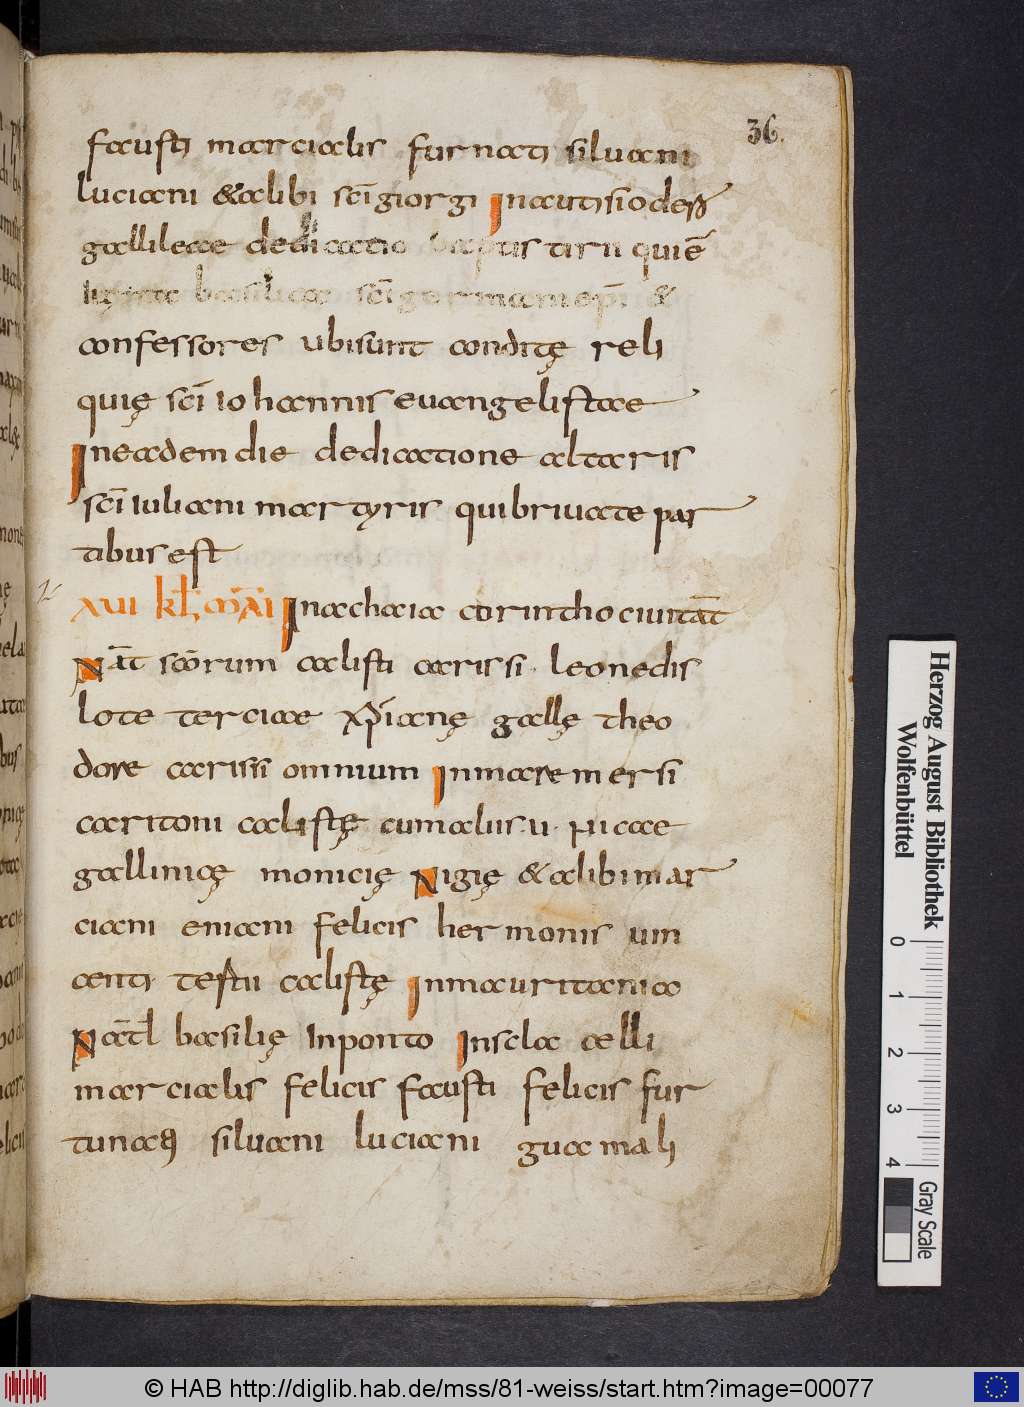 36.
faustı marcialis furnatı siluani
luciani &alibi sc̄i giorgi Inautisioder̄
gallileae dedicatio uirı quiē
basilicae sc̄i germani ep̄i &
confessores ubi sunt conditę reli
quię sc̄i iohannis euangelistae
In eadem die dedicatione altaris
sc̄i iuliani martyris qui briuate par
tibus est
XVI kl̄ mai In achaia corintho ciuitāt
Nāt scōrum calisti carissi· leonedis
lote terciae xp̄ianę gallę theo
dore carisii omnium In mare mersi
caritoni calistę cum aliis·u· picae
gallinicę monicię Nigię & alibi mar
ciani eniani felicis hermonis uin
centı testu calistę In mauritania
Natl̄ basilię In ponto In scla celli
marcialis felicis fausti felicis fur
tunaq; siluani luciani gua mali
Herzog August Bibliothek
Wolfenbüttel
0 1 2 3 4
Gray Scale
© HAB http://diglib.hab.de/mss/81-weiss/start.htm?image=00077